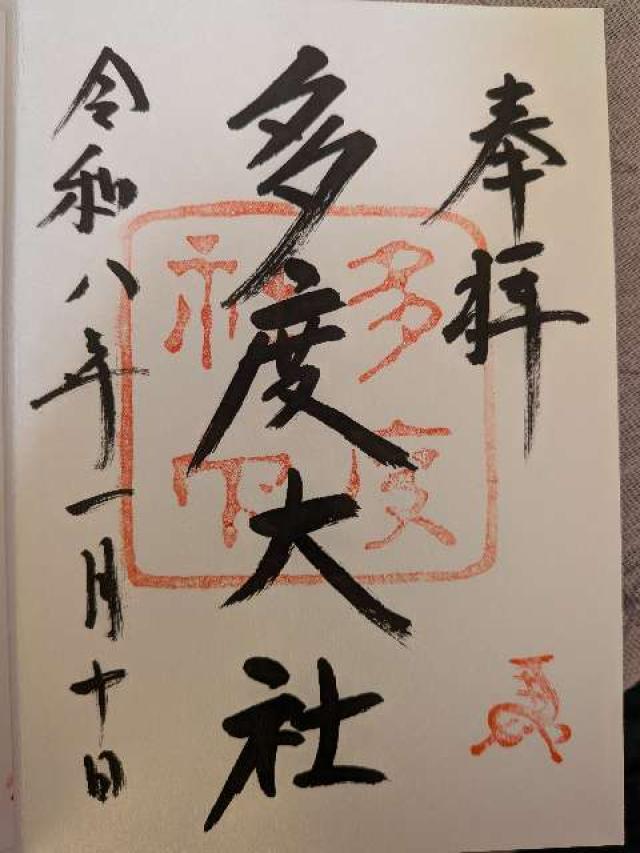 奉拝
多度大社
令和八年一月十日
多度
神下